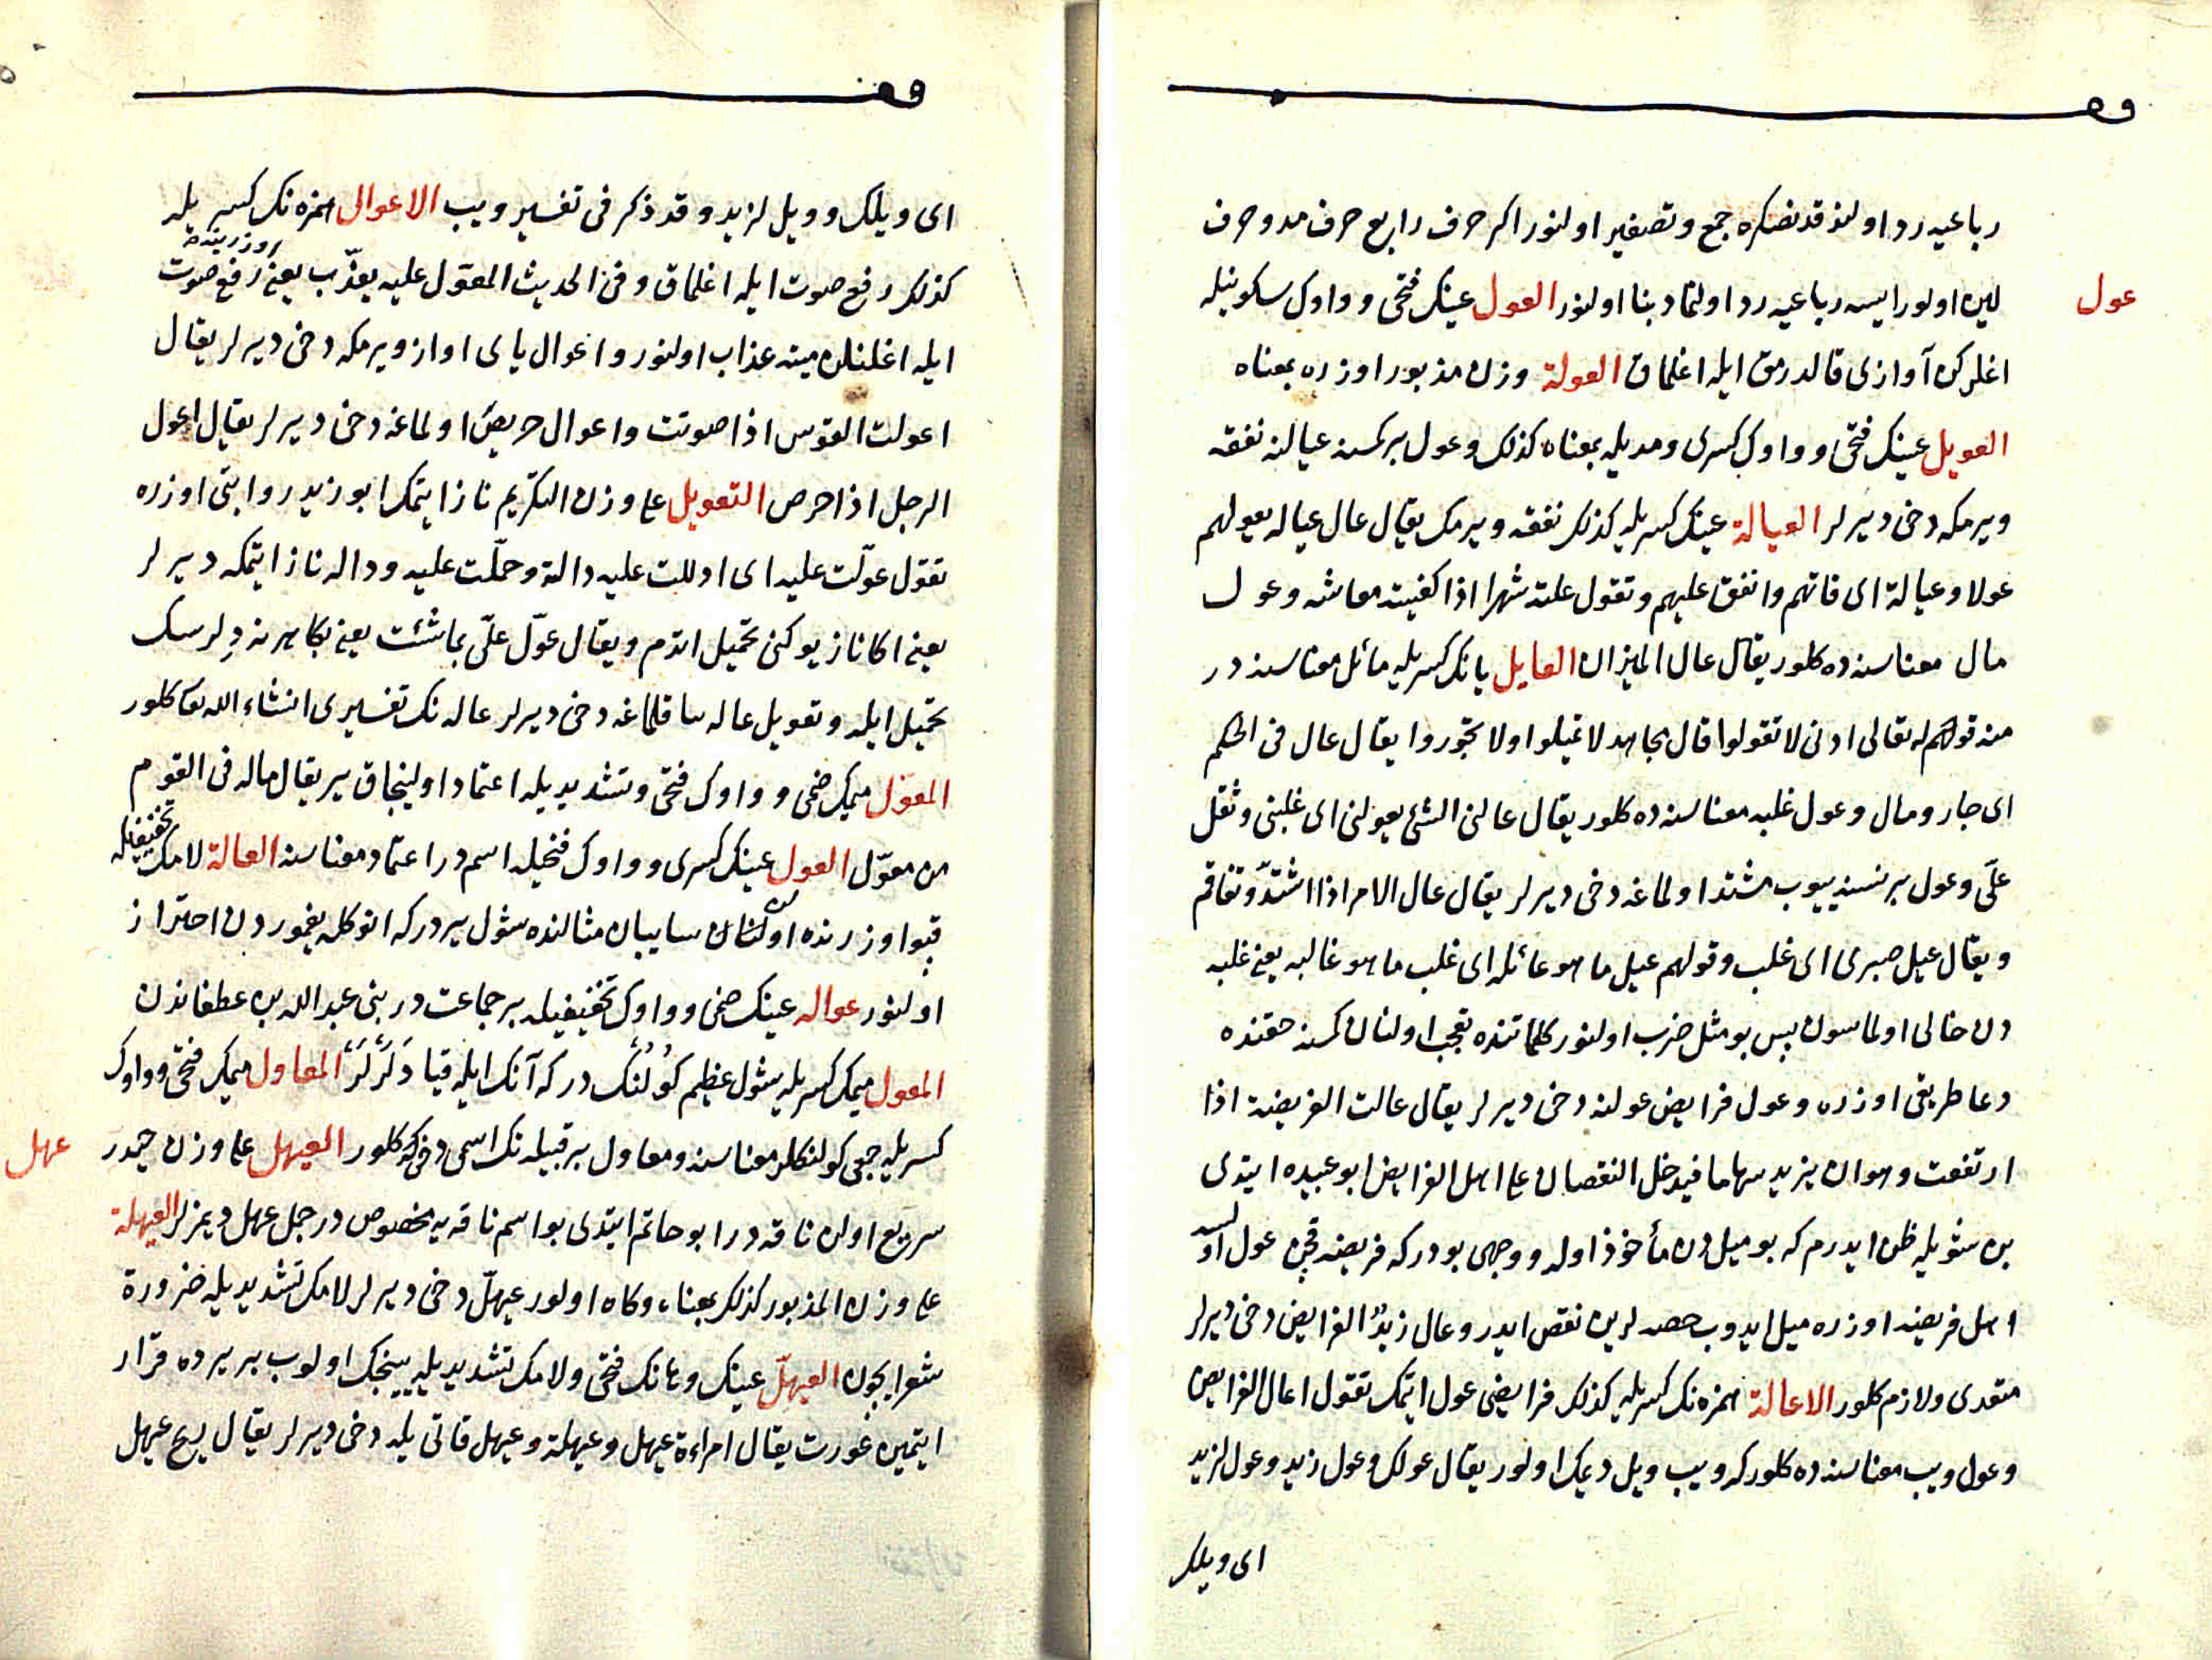 رباعيه رد اولنوقدنصكره جمع و تصغير اولنور اكر حرف رابع حرف مد و حرف
عول
لين اولور ايسه رباعيه رد اولنمادين بنا اولنور العول عينك فتحى و واوك سكونيله
اغلركن آوازى قالدرمق ايله اغلماق العولة وزن مذبور اوزره بمعناه
العويل عينك فتحى و واوك كسرى و مديله بمعناه كذلك و عول بر كمسنه عيالنه نفقه
ويرمكه دخى ديرلر العيالة عينك كسريله كذلك نفقه ويرمك يقال عال عياله يعولهم
عولا و عيالة اى قاتهم وانفق عليهم و تقول علته شهرا اذا كفيته معاشه و عول
مال معناسنده كلور يقال عال الميزان العايل يانك كسريله مائل معناسنه در
منه قولهم له تعالى ادنى لا تعولوا قال مجاهد لا تميلوا ولا تجوروا يقال عال فى الحكم
اى جار و مال و عول غلبه معناسنده كلور يقال عالنى الشئ يعولنى اى غلبنى و ثقل
علّى و عول بر نسنه بيوب مشتد اولماغه دخى ديرلر يقال عال الامر اذا اشتدّ و تفاقم
و يقال عيل صبرى اى غلب و قولهم عيل ما هو عائله اى غلب ما هو غالبه يعنى غلبه
دن خالى اولماسون پس بو مثل ضرب اولنور كلماتنده تعجب اولنان كمسنه حقنده
دعا طريقى اوزره و عول فرايض عولنه دخى ديرلر يقال عالت الفريضة اذا
ارتفعت و هو ان يزيد سهاما فيدخل النقصان على اهل الفرايض ابو عبيده ايتدى
بن شويله ظن ايدرم كه بو ميل دن مأخوذ اوله و وجهى بو در كه فريضه قچن عول اولسه
اهل فريضه اوزره ميل ايدوب حصه لرين نقص ايدر و عال زيدٌ الفرايض دخى ديرلر
متعدى و لازم كلور الاعالة همزه نك كسريله كذلك فرايضى عول ايتمك تقول اعال الفرايض
و عول ويب معناسنده كلور كه ويب ويل ديمك اولور يقال عولك و عول زيد و عول لزيد
اى ويلك
اى ويلك و ويل لزيد و قد ذكر فى تفسير ويب الاعوال همزه نك كسريله
كذلك رفع صوت ايله اغلماق و فى الحديث المعول عليه يعذّب يعنى اوزرينه رفع صوت
ايله اغلنلن ميته عذاب اولنور و اعوال ياى اواز ويرمكه دخى ديرلر يقال
اعولت القوس اذا صوتت و اعوال حريص اولماغه دخى ديرلر يقال اعول
الرجل اذا حرص التعويل على وزن التكريم ناز ايتمك ابو زيد روايتى اوزره
تقول عوّلت عليه اى ادللت عليه دالة و حملّت عليه و داله ناز ايتمكه ديرلر
يعنى اكا ناز يوكنى تحميل اتدم و يقال عوّل علّى بما شئت يعنى بكا هر نه ديلرسك
تحميل ايله و تعويل عاله يه صاقلماغه دخى ديرلر عاله نك تفسيرى انشاء الله تعا كلور
المعوّل ميمك ضمى و واوك فتحى و تشديديله اعتماد اولينجاق ير يقال ماله فى القوم
من معوّل العول عينك كسرى و واوك فتحيله اسم در اعتماد معناسنه العالة لامك تخفيفيله
قپو اوزرنده اولنان سايبان مثالنده شول يردر كه انوكله يغموردن احتراز
اولنور عواله عينك ضمى و واوك تخفيفيله بر جماعت در بنى عبد الله بن غطفاندن
المعول ميمك كسريله شول عظيم كولنك در كه آنك ايله قيا دلرلر المعاول ميمك فتحى و واوك
كسريله جمعى كولنكلر معناسنه و معاول بر قبيله نك اسمى دخى كلور العيهل على وزن حيدر
عهل
سريع اولن ناقه در ابو حاتم ايتدى بو اسم ناقه يه مخصوص در جمل عهل ديمزلر العيهلة
على وزن المذبور كذلك بمعناه و كاه اولور عيهلّ دخى ديرلر لامك تشديديله ضرورة
شعر ايچون العيهلّ عينك و هانك فتحى و لامك تشديديله يينجك اولوب بر يرده قرار
ايتمين عورت يقال امراءة عيهل و عيهلة و عيهل قاتى يله دخى ديرلر يقال ريح عيهل